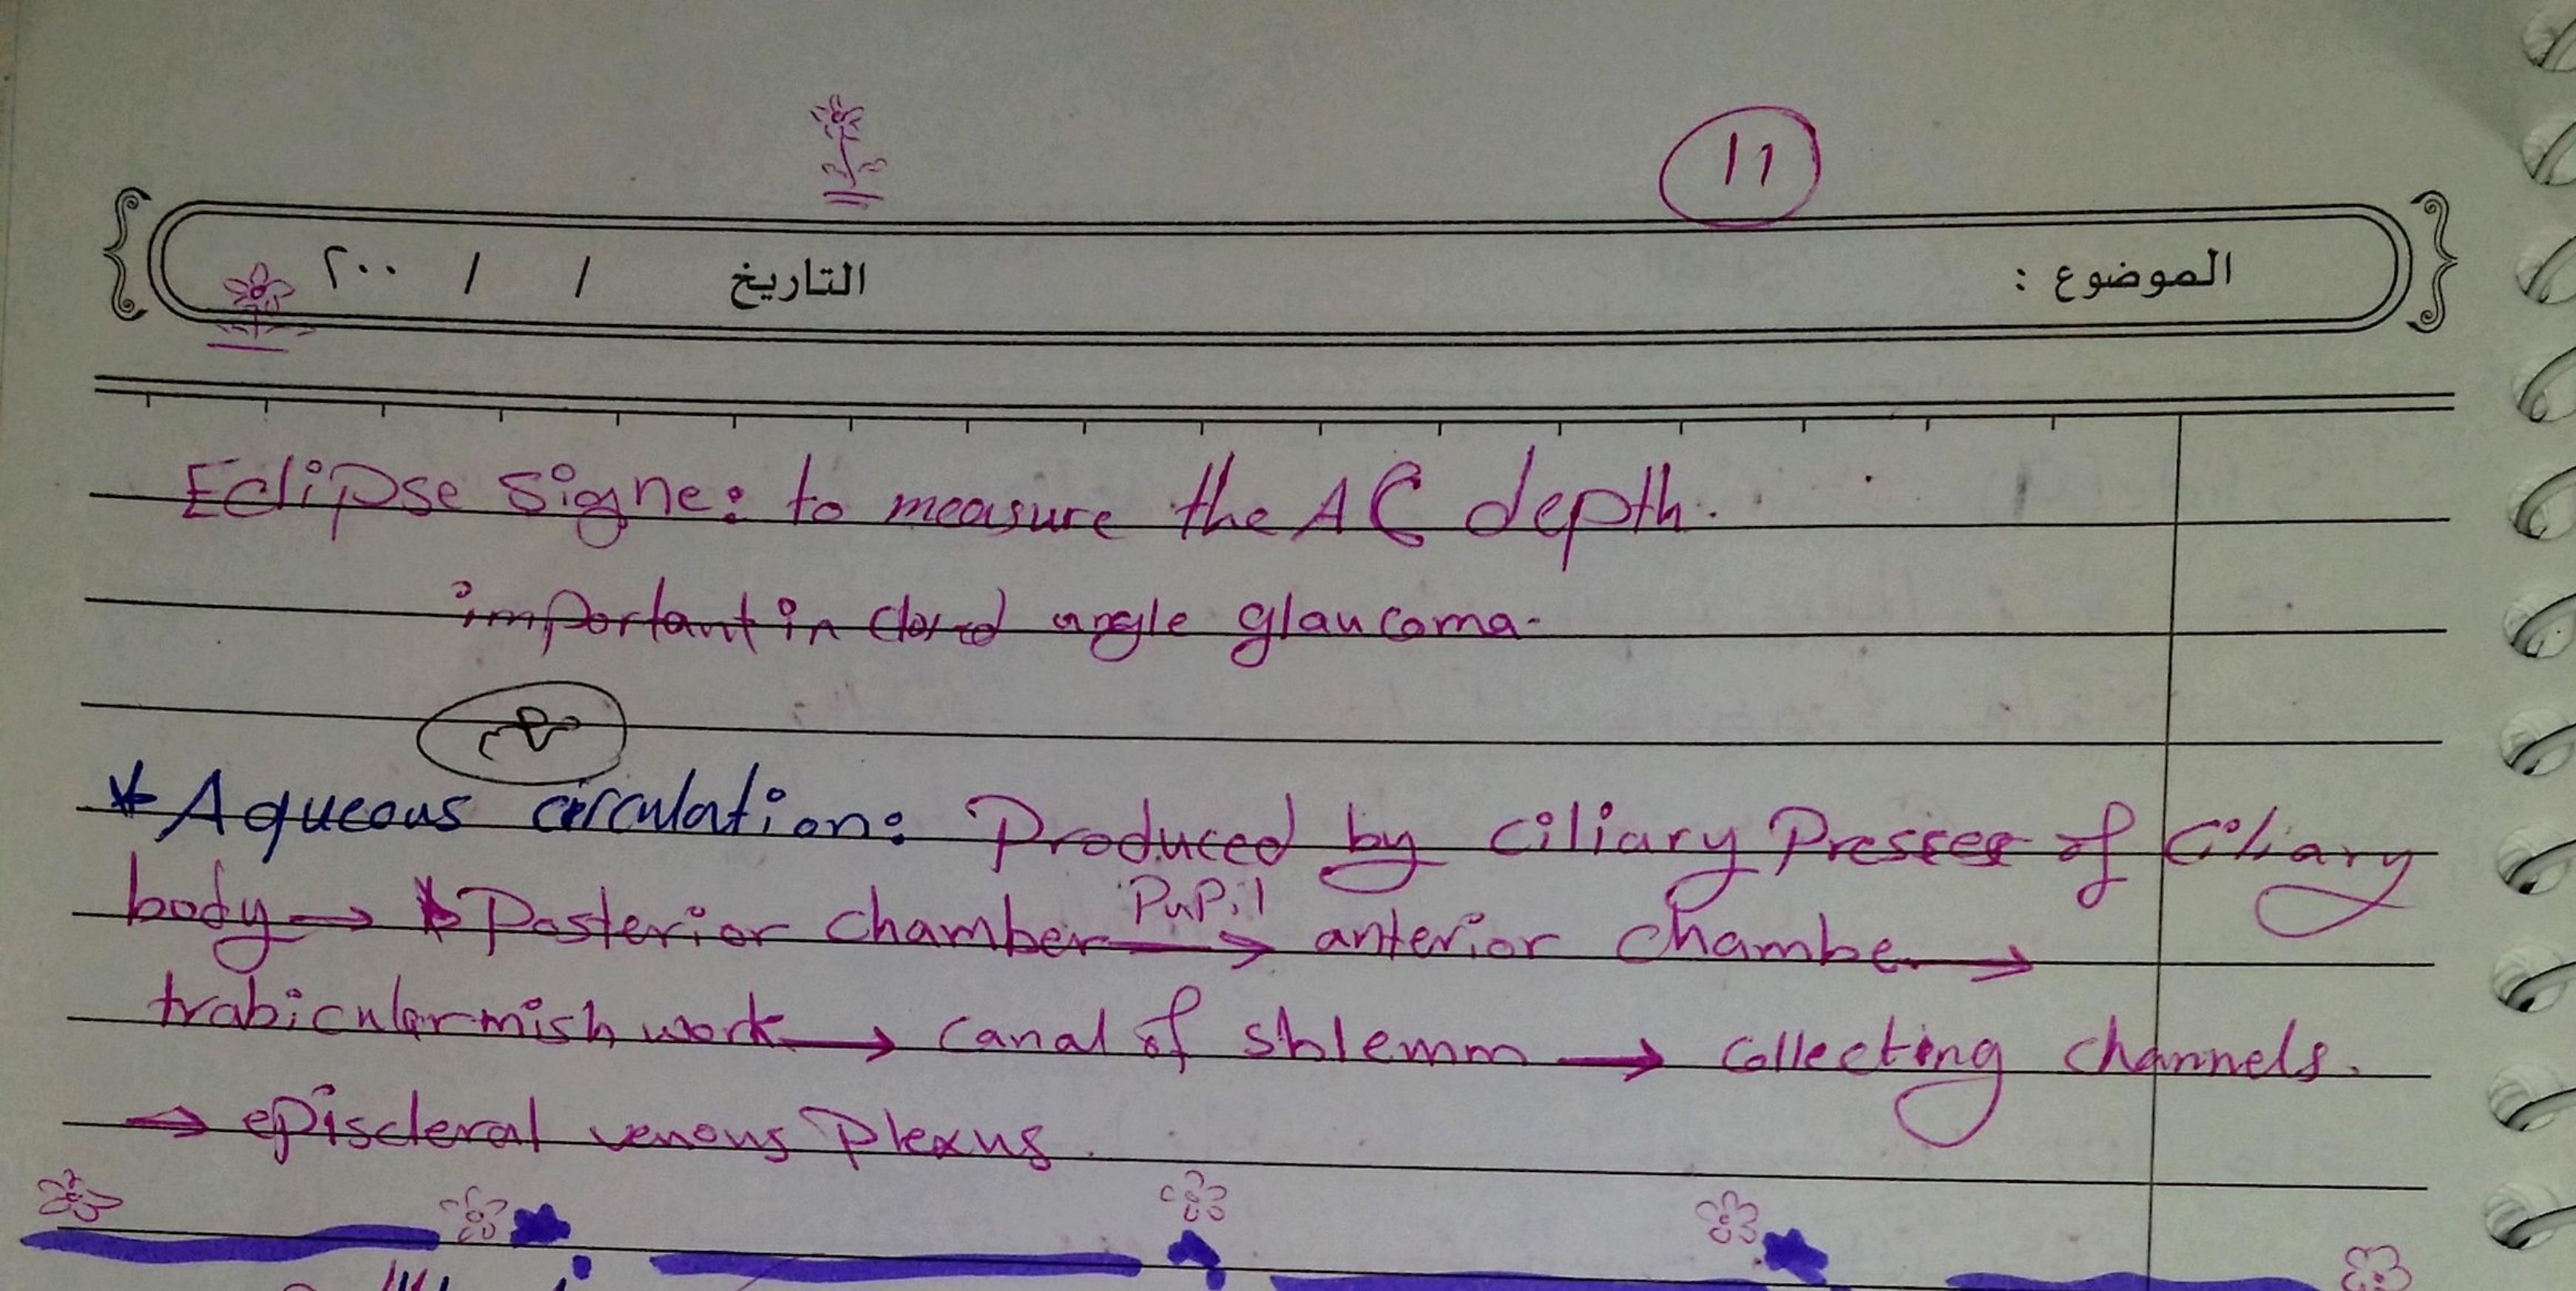 11
الموضوع : التاريخ / / ٢٠٠
Eclipse signe: to measure the AC depth.
important in closed angle glaucoma.
* Aqueous circulation: Produced by ciliary Presses of Ciliary
body → Posterior chamber Pupil → anterior chambe →
trabicular mish work → canal of shlemm → collecting channels.
→ episcleral venous Plexus.